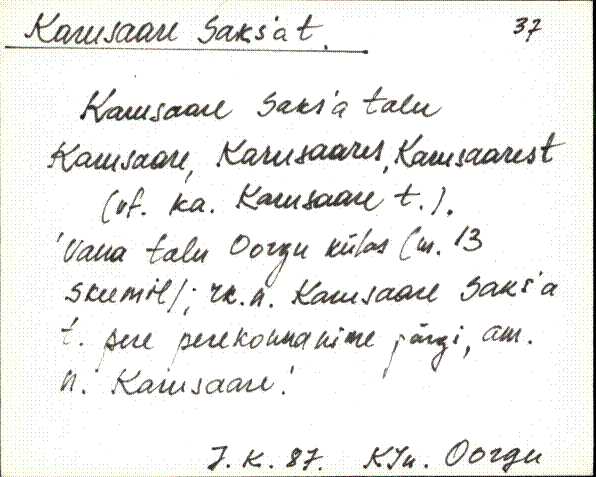 Karusaare Saks'a t. 37
Karusaare Saks'a talu
Karusaare, Karusaares, Karusaarest
(vt. ka. Karusaare t.).
'Vana talu Oorgu külas (nr. 13
skeemil); rk.n. Karusaare Saks'a
t. pere perekonnanime järgi, am.
n. Karusaare.'
J.K. 87. KJn. Oorgu